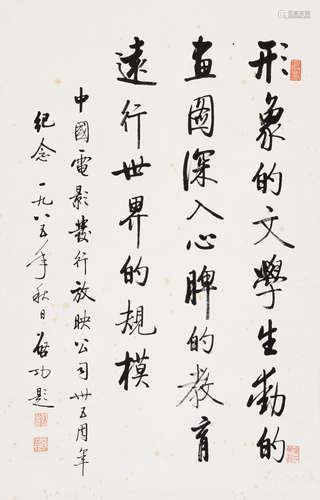 形象的文學生動的
畫圖深入心脾的教育
遠行世界的規模
中國電影發行放映公司卅五周年
紀念 一九八五年秋日 啟功題